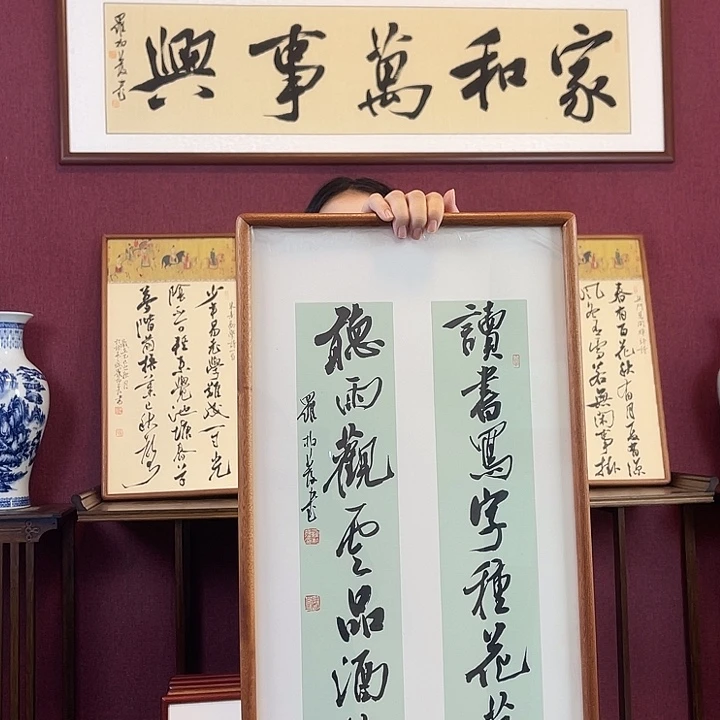 家和萬事興
讀書寫字種花
聽雨觀雲品酒
春有百花秋有月夏有涼
風冬有雪若無閑事掛
少年易老學難成一寸光
陰不可輕未覺池塘春草
夢階前梧葉已秋聲